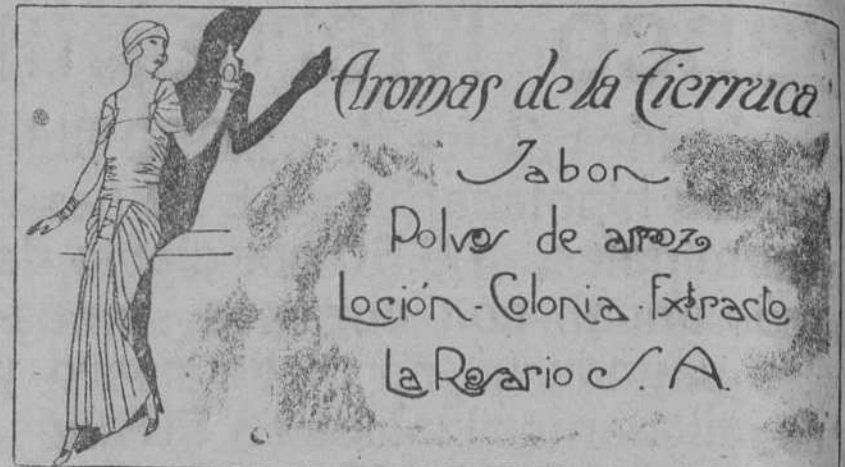 Aromas de la Tierruca
Jabon
Polvos de arroz
Loción-Colonia-Extracto
La Rosario S. A.